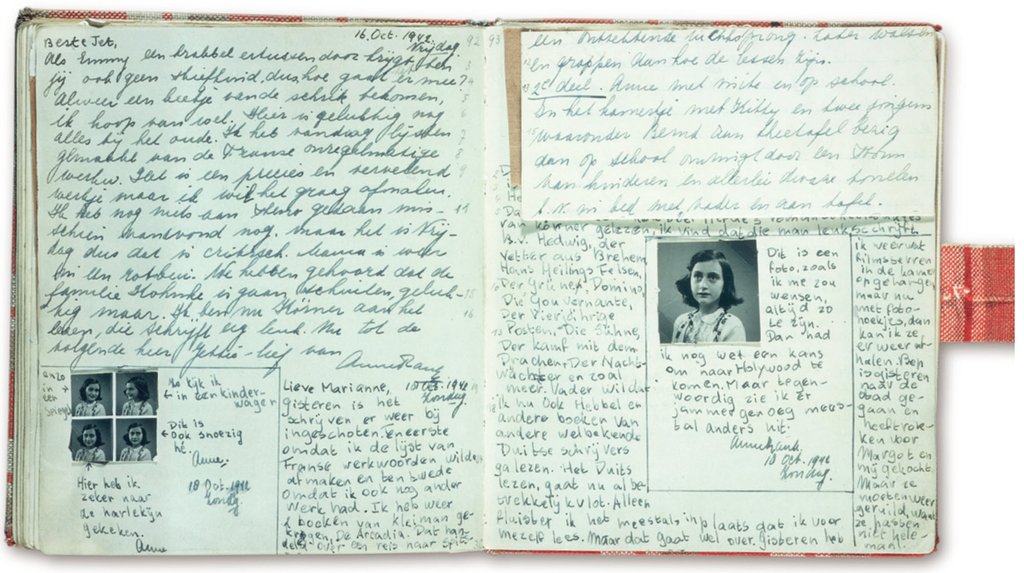 16. Oct. 1942
Vrijdag
Beste Jet,
Als Emmy een krabbel ertussen door krijgt, ben
jij ook geen stiefkind, dus hoe gaat er mee?
Alweer een beetje van de schrik bekomen,
ik hoop van wel. Hier is gelukkig nog
alles bij het oude. Ik heb vandaag lijsten
gemaakt van de Franse onregelmatige
werkw. Het is een precies en vervelend
werkje maar ik wil het graag afmaken.
Ik heb nog niets aan steno gedaan mis-
schien vanavond nog, maar het is Vrij-
dag dus dat is critisch. Mama is weer
in een rotbui. We hebben gehoord dat de
familie is gaan schuilen, geluk-
kig maar. Ik ben nu Körner aan het
lezen, die schrijft erg leuk. Nu tot de
volgende keer, Jettie-lief van
Anne Frank
enzo
in
een
spiegel
Nu kijk ik
in een kinder-
wagen
Dit is
ook snoezig
hè.
Anne.
Hier heb ik
zeker naar
de harlekijn
gekeken.
Anne
18 Oct. 1942
Zondag
Lieve Marianne,
18 Oct. 1942
Zondag
gisteren is het
schrijven er weer bij
ingeschoten. Ten eerste
omdat ik de lijst van
Franse werkwoorden wilde
afmaken en ten twede
omdat ik ook nog ander
werk had. Ik heb weer
2 boeken van kleiman ge-
kregen. De Arcadia. Dat han-
deld over een reis naar
92
93
een ontzettende luchtsprong. Later walsen
en grappen aan hoe de lessen zijn.
2e deel. Anne met visite en op school.
In het kamertje met Kitty en twee jongens
waaronder Bernd aan theetafel bezig
dan op school omringd door een
van kinderen en allerlei dwaze
b.v. in bed met vader en aan tafel.
van körner gelezen, ik vind dat die man leuk schrijft.
B.v. Hedwig, der
Vetter aus Brehem
Hans Heilings Felsen,
Der grüne Domino,
Die Gouvernante,
Der Vierjährige
Posten, Die Sühne,
Der kampf mit dem
Drachen, Der Nacht-
wächter en zoo
meer. Vader wil dat
ik nu ook Hebbel en
andere boeken van
andere welbekende
Duitse schrijvers
ga lezen. Het Duits
lezen, gaat nu al be-
trekkelijk vlot. Alleen
fluister ik het meestal, in plaats dat ik voor
mezelf lees. Maar dat gaat wel over. gisteren heb
Dit is een
foto, zoals
ik me zou
wensen,
altijd zo
te zijn.
Dan had
ik nog wel een kans
om naar Holywood te
komen. Maar tegen-
woordig zie ik er
jammer genoeg mees-
tal anders uit.
Anne Frank.
18 Oct. 1942
Zondag.
ik veeruit
filmsterren
in de kamer
opgehangen,
maar nu
met foto-
hoekjes, dan
kan ik ze,
er weer af
halen. Ben
is gisteren
naar de
stad ge-
gaan en
heeft rok-
ken voor
Margot en
mij gekocht.
Maar ze
moeten weer
geruild, want
ze passen
niet hele-
maal.